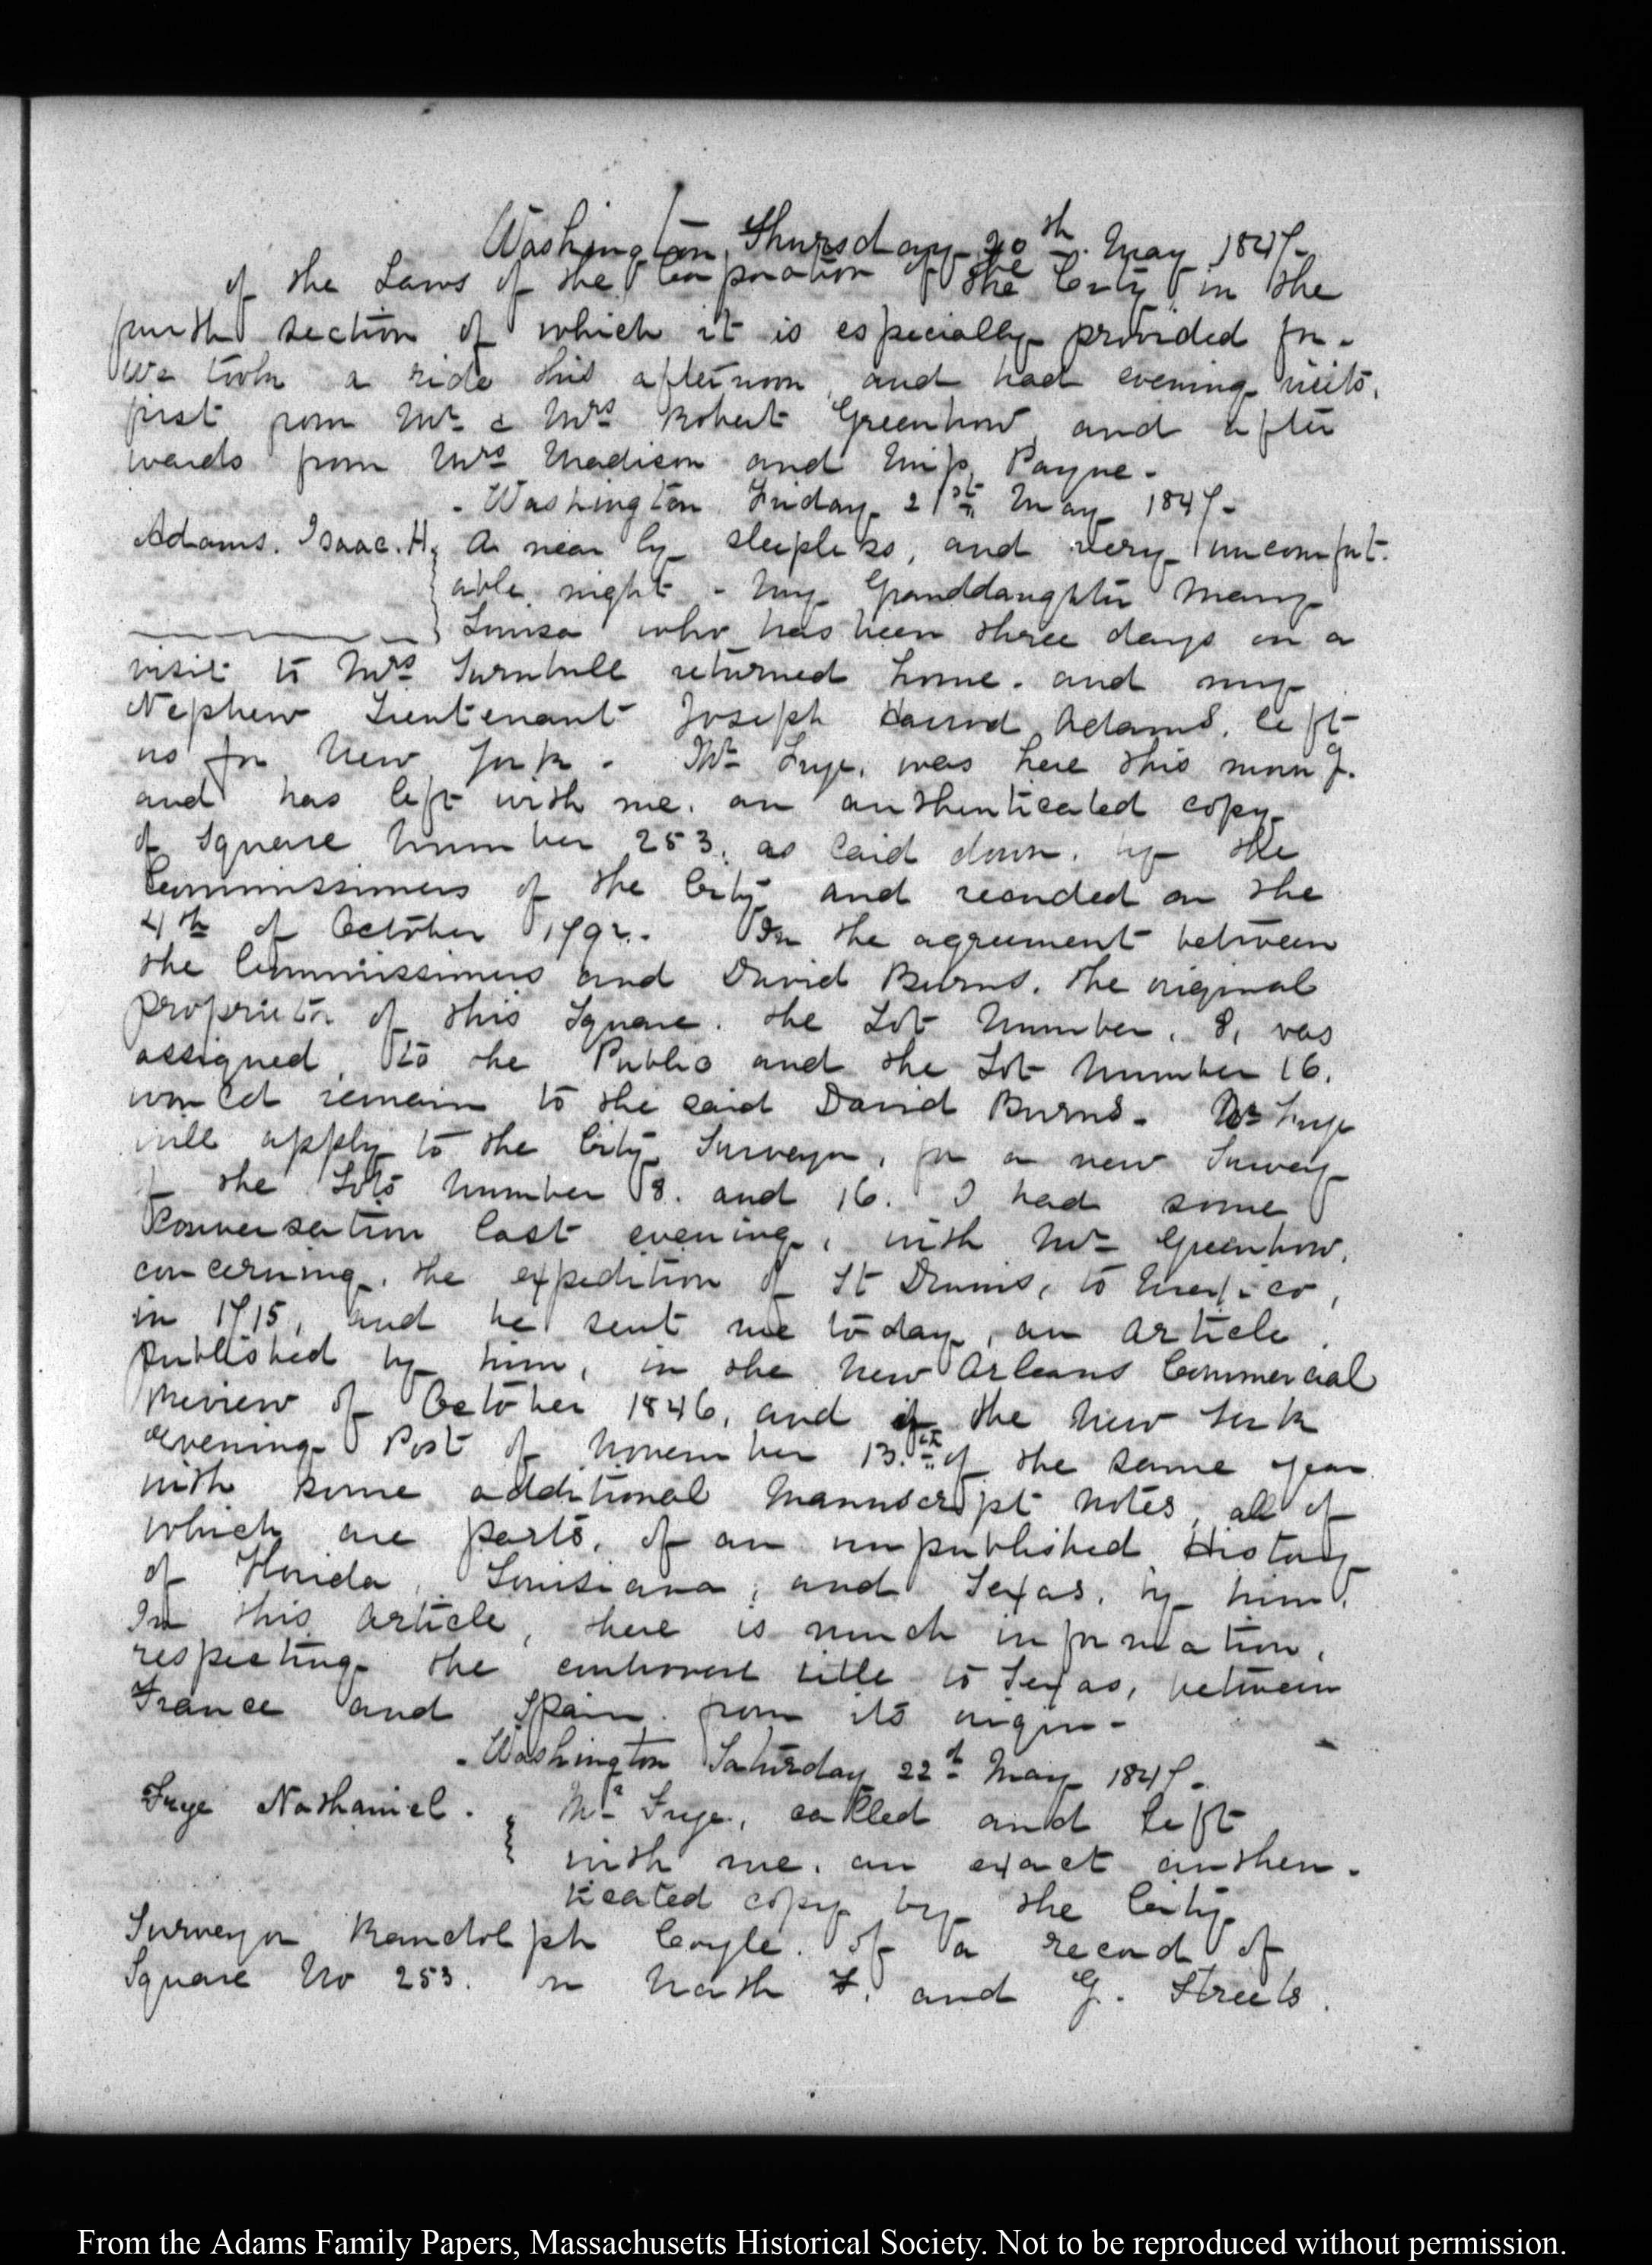 Washington Thursday 20th. May 1847-
of the Laws of the Corporation of the City, in the
fourth section of which it is especially provided for-
We took a ride this afternoon, and had evening visits,
first from Mr & Mrs Robert Greenhow, and after
wards from Mrs Madison and Miss Payne-
- Washington Friday 21st May 1847-
Adams. Isaac. H. A nearly sleepless, and very uncomfort-
able night - My Granddaughter Mary
Louisa who has been three days on a
visit to Mrs Turnbull returned home. and my
Nephew Lieutenant Joseph Harrod Adams, left
us for New York. Mr Frye, was here this morng.
and has left with me. an authenticated copy
of Square Number 253. as laid down. by the
Commissioners of the City and recorded on the
4th of October 1792.- In the agreement between
the Commissioners and David Burns. the original
proprietor of this Square. the Lot Number. 8, was
assigned, to the Public and the Lot Number 16.
would remain to the said David Burns- Mr Frye
will apply to the City Surveyor, for a new Survey
of the Lots Number 8. and 16. I had some
Conversation last evening, with Mr Greenhow,
concerning, the expedition of St Denis, to Mexico,
in 1715, and he sent me today, an Article
published by him, in the New Orleans Commercial
Review of October 1846, and of the New York
Evening Post of November 13.th of the same year
with some additional Manuscript notes, all of
which are parts, of an unpublished History
of Florida, Louisiana, and Texas, by him,
In this Article, there is much information,
respecting the controvert title to Texas, between
France and Spain. from its origin-
- Washington Saturday 22d May 1847-
Frye Nathaniel. Mr Frye, called and left
with me. an exact authen-
ticated copy by the City
Surveyor Randolph Coyle. of a record of
Square No 253. on North F. and G. Streets.
From the Adams Family Papers, Massachusetts Historical Society. Not to be reproduced without permission.